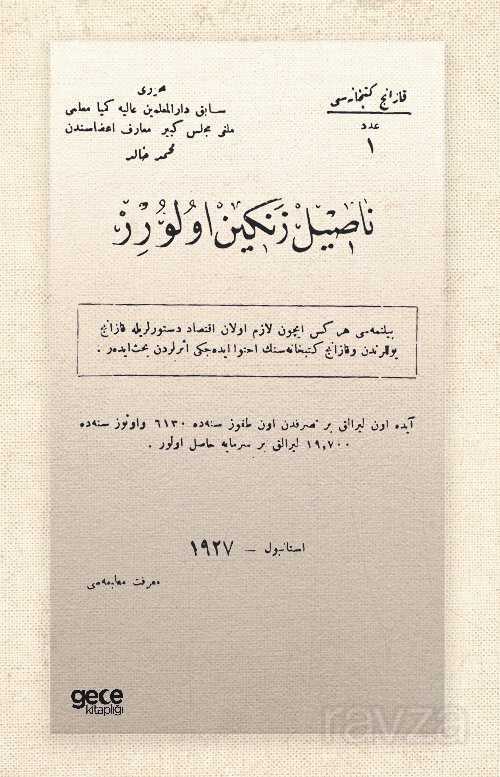 قازانج كتبخانه‌سی
عدد
۱
محرری
سابق دارالمعلمین عالیه كیمیا معلمی
ملغی مجلس كبیر معارف اعضاسندن
محمد خالد
ناصیل زنكین اولورز
بیلنمه‌سی هر كس ایچون لازم اولان اقتصاد دستورلریله قازانج
یوللرندن و قازانج كتبخانه‌سنك احتوا ایده‌جكی اثرلردن بحث ایدر .
آیده اون لیرالق بر تصرفدن اون طقوز سنه‌ده ٦١٣٠ و اوتوز سنه‌ده
١٩,٧٠٠ لیرالق بر سرمایه حاصل اولور .
استانبول — ١٩٢٧
معرفت مطبعه‌سی
gece
kitaplığı
ravza